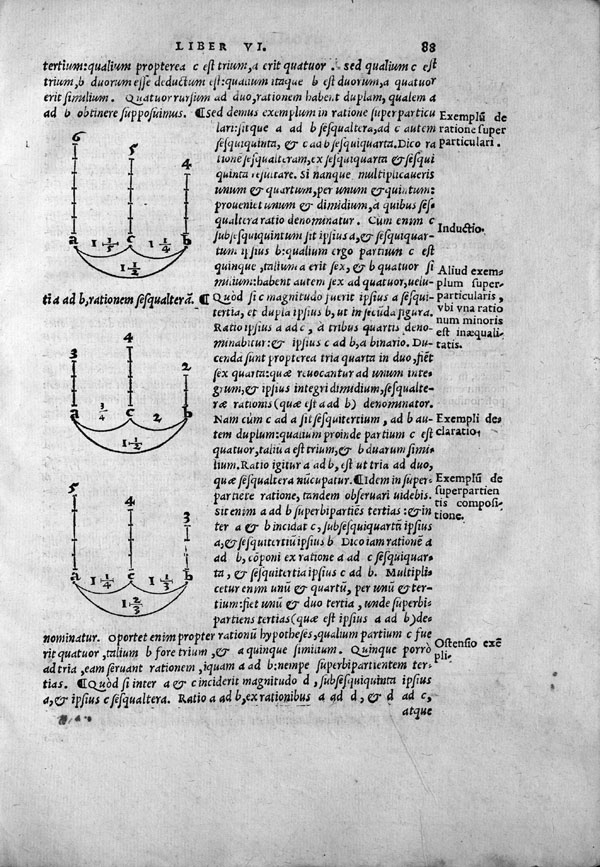 LIBER VI. 88
tertium: qualium propterea c est trium, a erit quatuor. sed qualium c est
trium, b duorum esse deductum est: qualium itaque b est duorum, a quatuor
erit similium. Quatuor rursum ad duo, rationem habent duplam, qualem a
ad b obtinere supposuimus. ¶ sed demus exemplum in ratione superparticu
lari: sitque a ad b sesqualtera, ad c autem
sesquiquinta, & c ad b sesquiquarta. Dico ra
tionē sesqualteram, ex sesquiquarta & sesqui
quinta resultare. Si nanque multiplicaueris
unum & quartum, per unum & quintum:
proueniet unum & dimidium, à quibus ses-
qualtera ratio denominatur. Cùm enim c
subsesquiquintum sit ipsius a, & sesquiquar-
tum ipsius b: qualium ergo partium c est
quinque, talium a erit sex, & b quatuor si
milium: habent autem sex ad quatuor, uelu-
ti a ad b, rationem sesqualterā. ¶ Quòd si c magnitudo fuerit ipsius a sesqui-
tertia, et dupla ipsius b, ut in secūda figura.
Ratio ipsius a ad c, à tribus quartis deno-
minabitur: & ipsius c ad b, a binario. Du-
cenda sunt propterea tria quarta in duo, fiēt
sex quarta: quæ reuocantur ad unum inte-
grum, & ipsius integri dimidium, sesqualte-
ræ rationis (quæ est a ad b) denominator.
Nam cùm c ad a sit sesquitertium, ad b au-
tem duplum: qualium proinde partium c est
quatuor, talium a est trium, & b duarum simi-
lium. Ratio igitur a ad b, est ut tria ad duo,
quæ sesqualtera nūcupatur. ¶ Idem in super-
partiēte ratione, tandem obseruari uidebis.
sit enim a ad b superbipartiēs tertias: & in
ter a & b incidat c, subsesquiquartū ipsius
a, & sesquitertiū ipsius b. Dico iam rationē a
ad b, cōponi ex ratione a ad c sesquiquar-
ta, & sesquitertia ipsius c ad b. Multipli-
cetur enim unū & quartū, per unū & ter-
tium: fiet unū & duo tertia, unde superbi-
partiens tertias (quæ est ipsius a ad b) de-
nominatur. Oportet enim propter rationū hypotheses, qualium partium c fue
rit quatuor, talium b fore trium, & a quinque similium. Quinque porrò
ad tria, eam seruant rationem, iquam a ad b: nempe superbipartientem ter-
tias. ¶ Quòd si inter a & c inciderit magnitudo d, subsesquiquinta ipsius
a, & ipsius c sesqualtera. Ratio a ad b, ex rationibus a ad d, & d ad c,
atque
Exemplū de
ratione super
particulari.
Inductio.
Aliud exem-
plum super-
particularis,
vbi vna ratio
num minoris
est inæquali-
tatis.
Exempli de-
claratio.
Exemplū de
superpartien
tis composi-
tione.
Ostensio exē
pli.
6 5 4
a c b
1 1/5 1 1/4
1 1/2
3 4 2
a c b
3/4 2
1 1/2
5 4 3
a c b
1 1/4 1 1/3
1 2/3